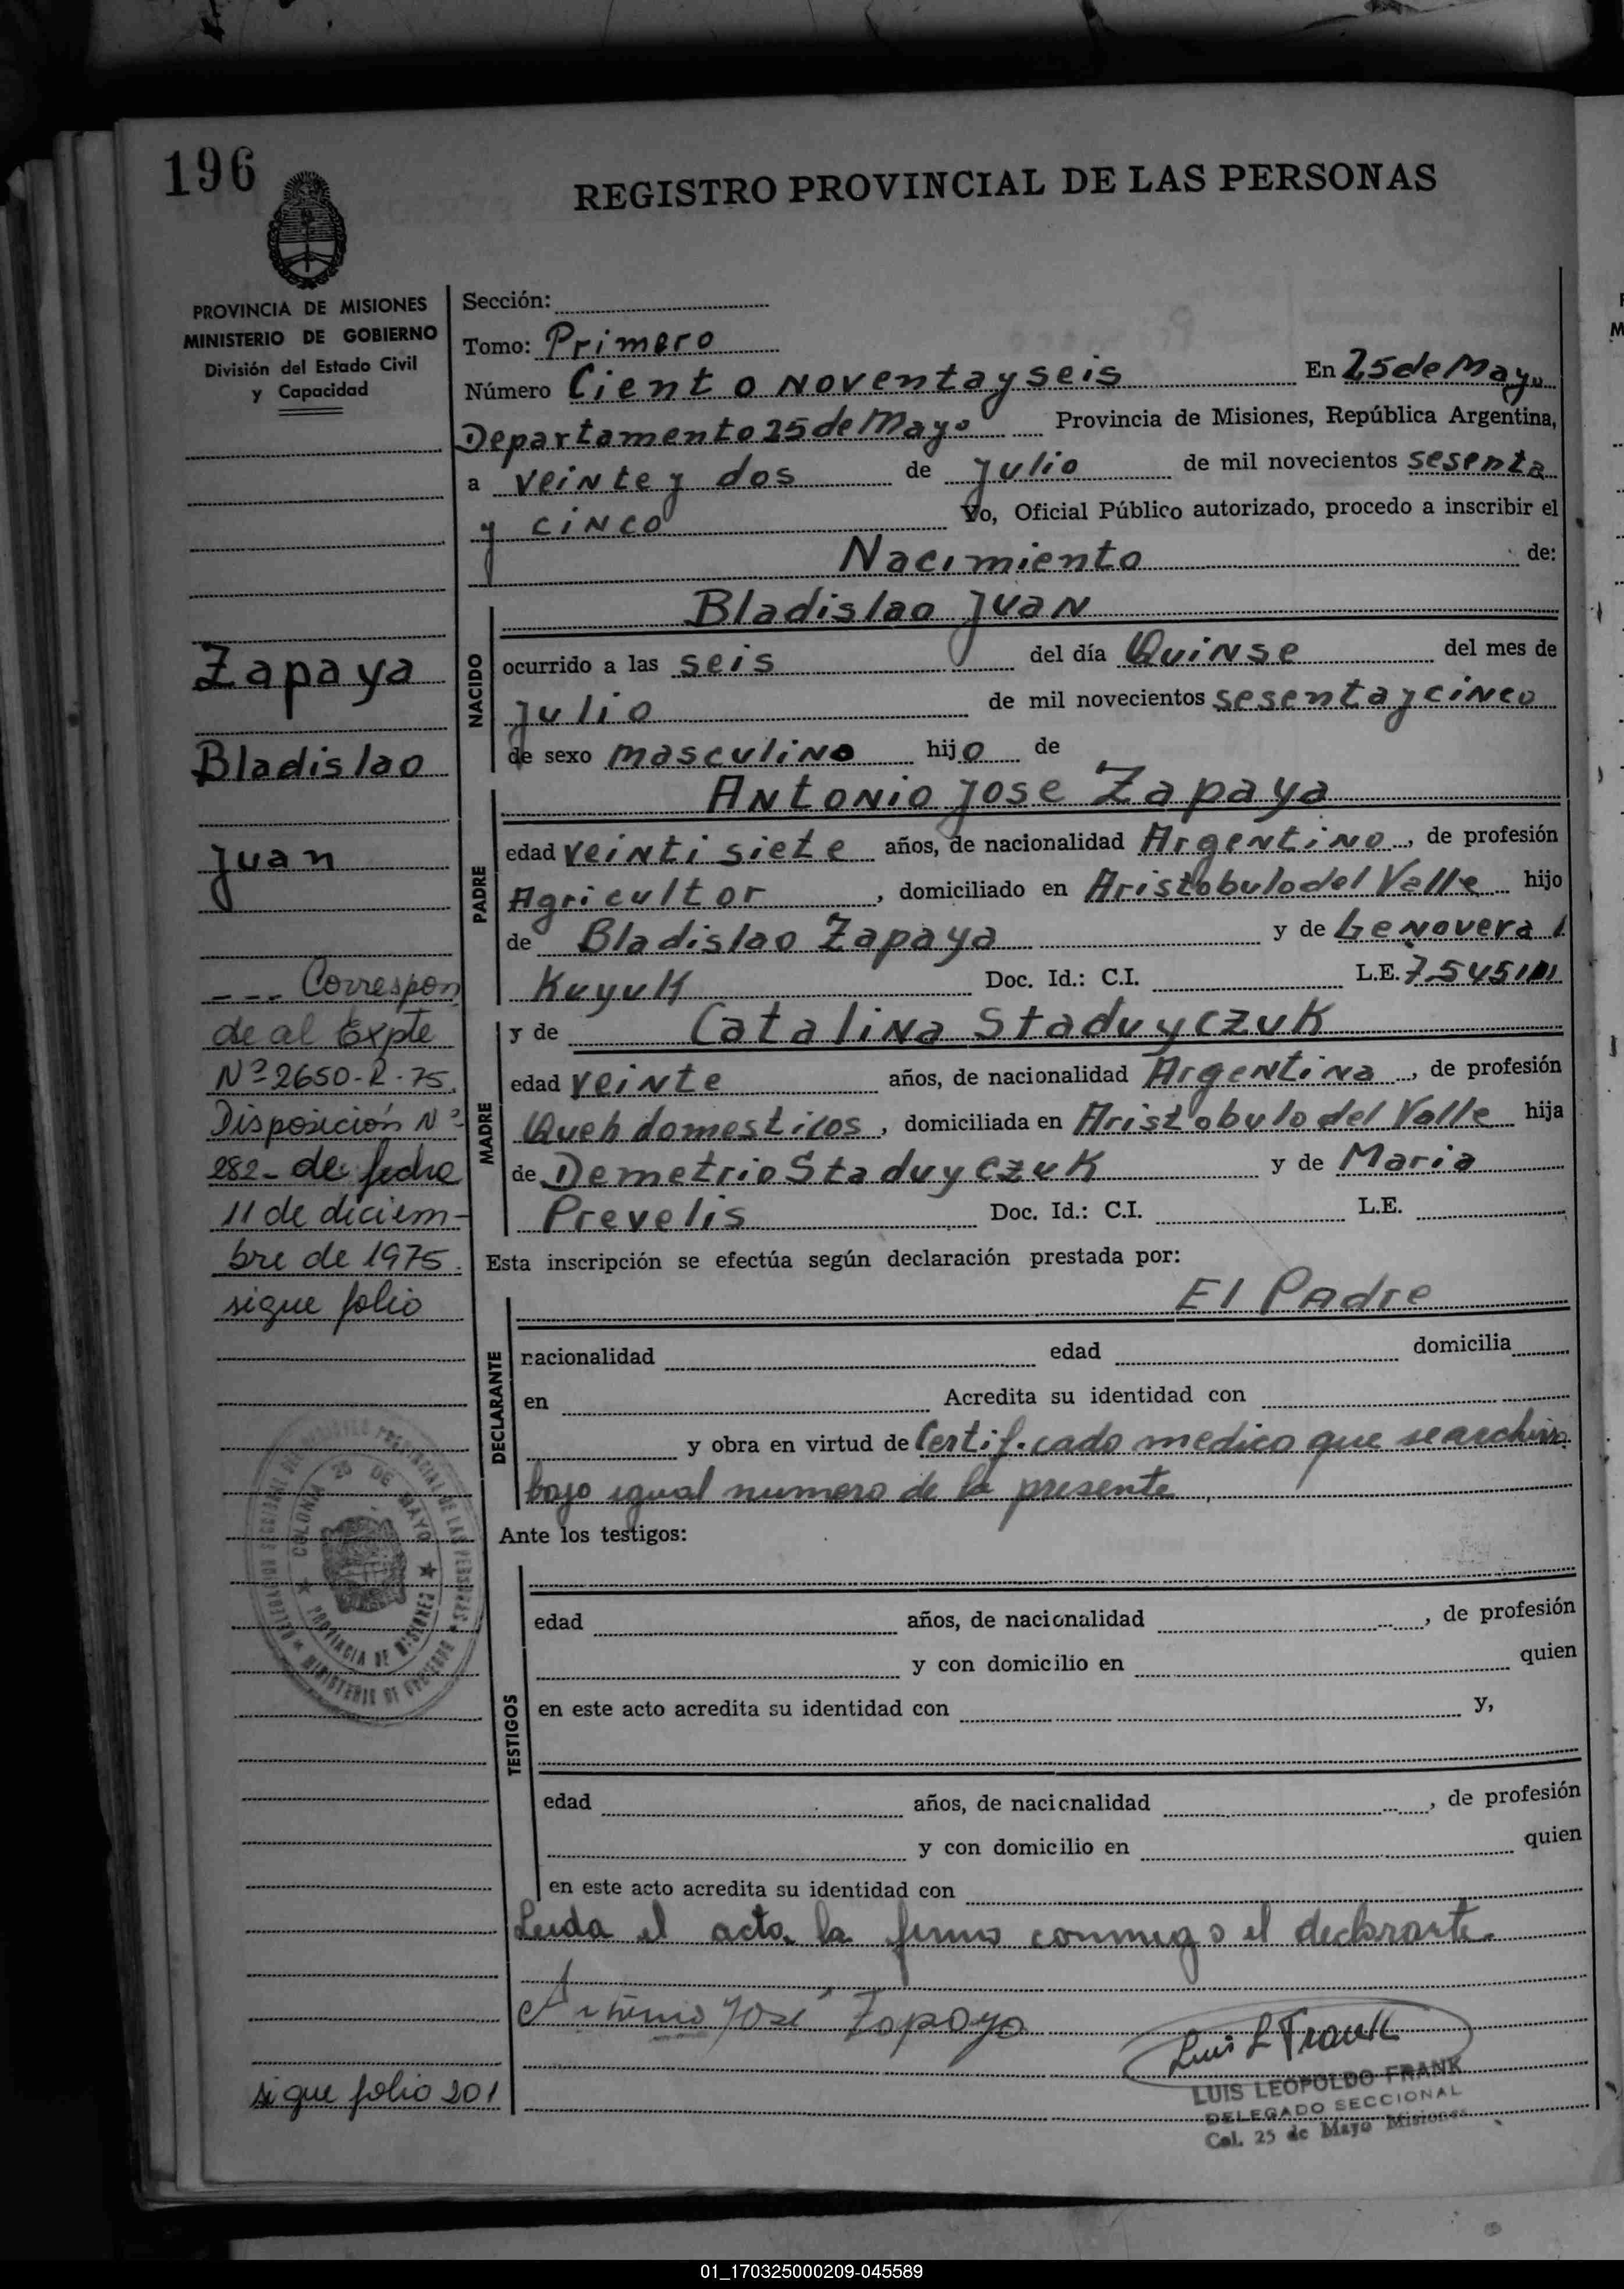 196
REGISTRO PROVINCIAL DE LAS PERSONAS
PROVINCIA DE MISIONES
MINISTERIO DE GOBIERNO
División del Estado Civil
y Capacidad
Zapaya
Bladislao
Juan
--- Correspon
de al Expte
Nº 2650-R-75.
Disposición Nº
282- de fecha
11 de diciem-
bre de 1975.
sigue folio
sigue folio 201
Sección:
Tomo: Primero
Número Ciento noventa y seis En 25 de Mayo
Departamento 25 de Mayo Provincia de Misiones, República Argentina,
a veinte y dos de Julio de mil novecientos sesenta
y cinco Yo, Oficial Público autorizado, procedo a inscribir el
Nacimiento de:
NACIDO
Bladislao Juan
ocurrido a las seis del día Quinse del mes de
Julio de mil novecientos sesenta y cinco
de sexo masculino hijo de
PADRE
Antonio Jose Zapaya
edad veinti siete años, de nacionalidad Argentino, de profesión
Agricultor, domiciliado en Aristobulo del Valle hijo
de Bladislao Zapaya y de
Kuyuk Doc. Id.: C.I. L.E.
MADRE
y de Catalina Staduyczuk
edad veinte años, de nacionalidad Argentina, de profesión
Queh domesticos, domiciliada en Aristobulo del Valle hija
de Demetrio Staduyczuk y de Maria
Prevelis Doc. Id.: C.I. L.E.
Esta inscripción se efectúa según declaración prestada por:
DECLARANTE
El Padre
nacionalidad edad domicilia
en Acredita su identidad con
y obra en virtud de Certificado medico que se archiva
bajo igual numero de la presente
Ante los testigos:
TESTIGOS
edad años, de nacionalidad , de profesión
y con domicilio en quien
en este acto acredita su identidad con y,
edad años, de nacionalidad , de profesión
y con domicilio en quien
en este acto acredita su identidad con
Leida el acta, la firma conmigo el declarante.
Antonio José Zapaya
Luis L Frank
LUIS LEOPOLDO FRANK
DELEGADO SECCIONAL
Col. 25 de Mayo Misiones
COLONIA 25 DE MAYO
PROVINCIA DE MISIONES
MINISTERIO DE GOBIERNO
01_170325000209-045589